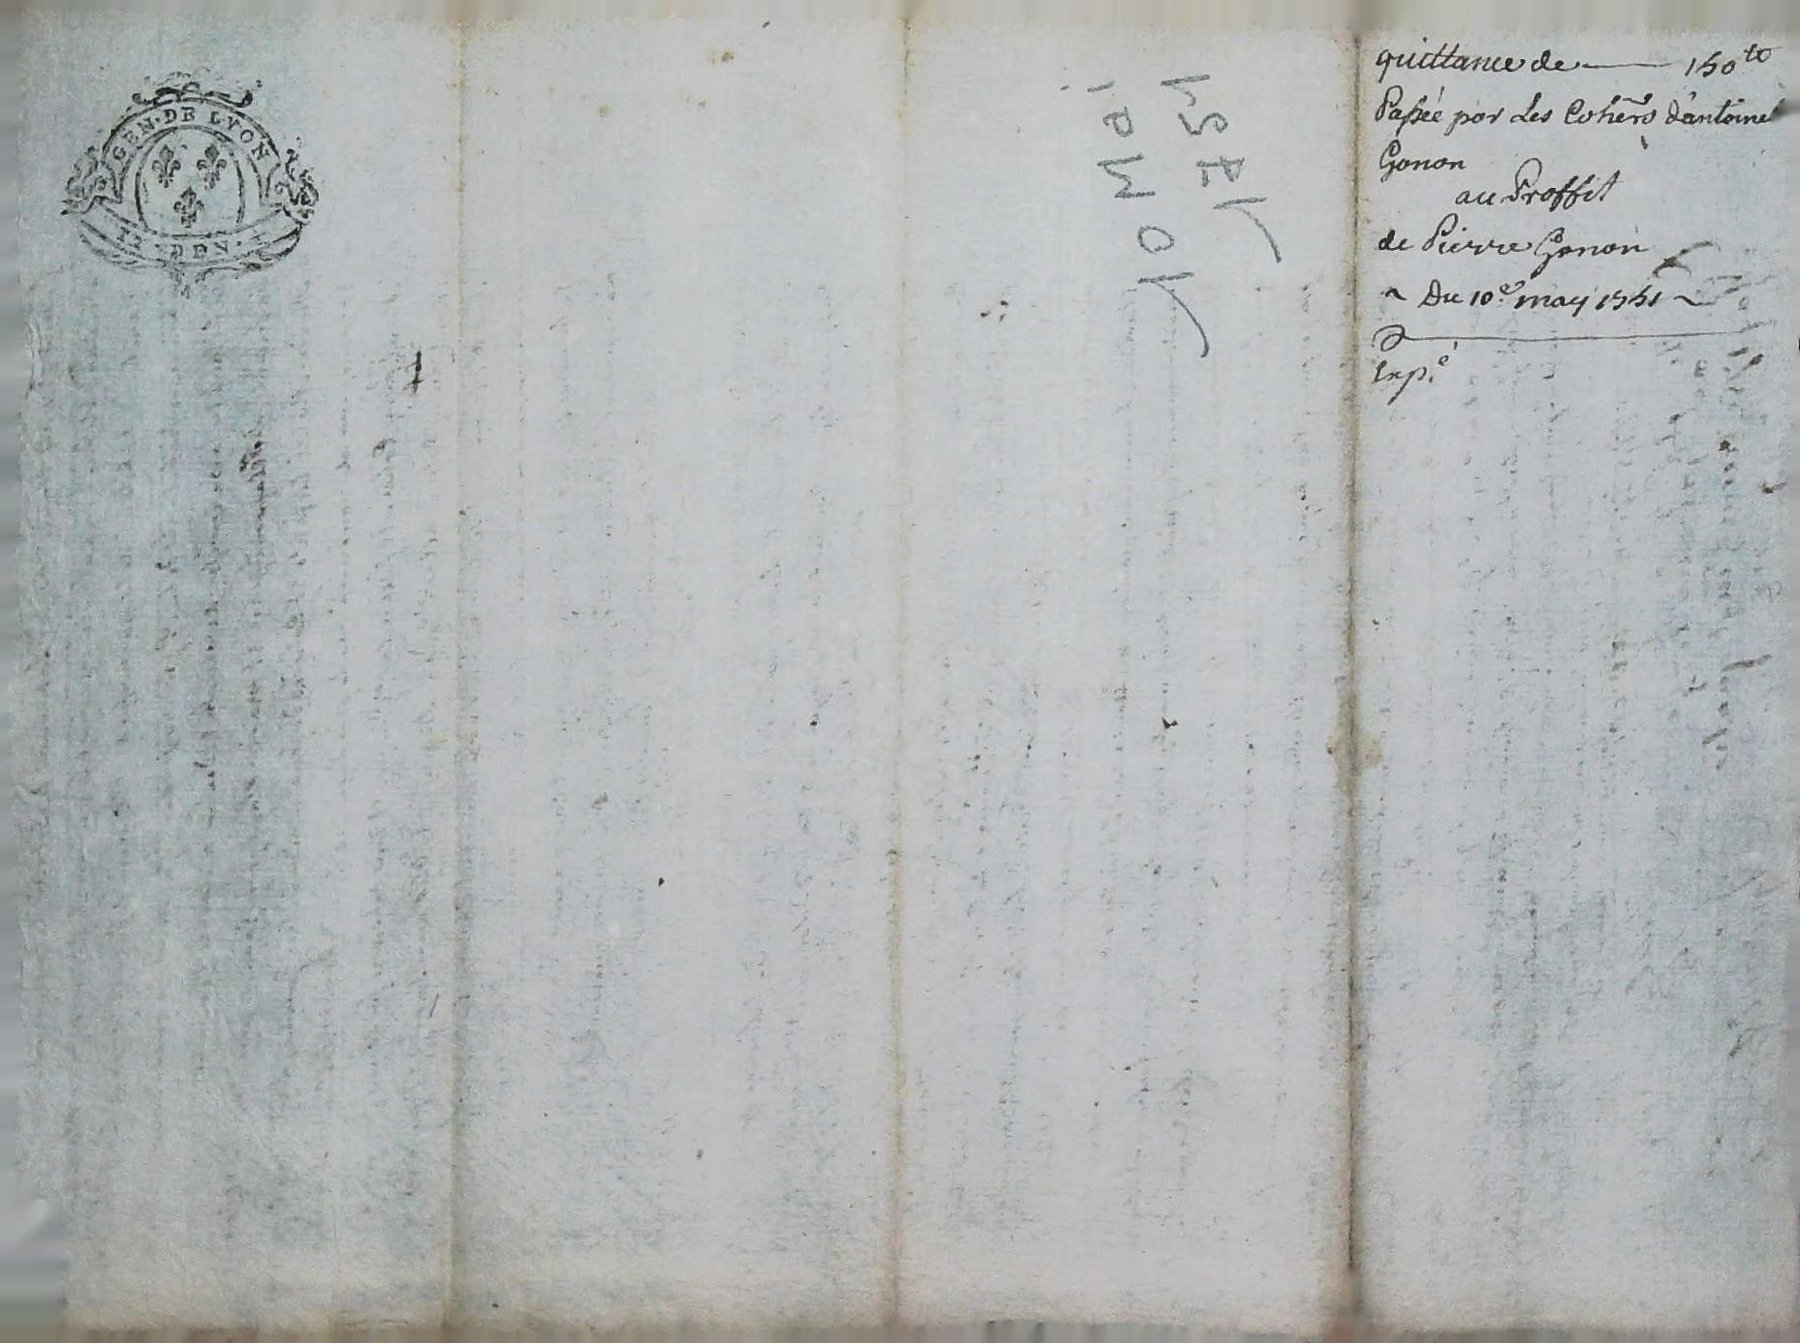 GEN·DE LYON
DEN·
10 Mai
1751
quittance de —— 150ᵗᵗ
Passée par Les Cohers̃ d'antoine
Gonon
au Proffit
de Pierre Gonon
~ Du 10.ᵉ may 1751 ~
Exp.ᵉ